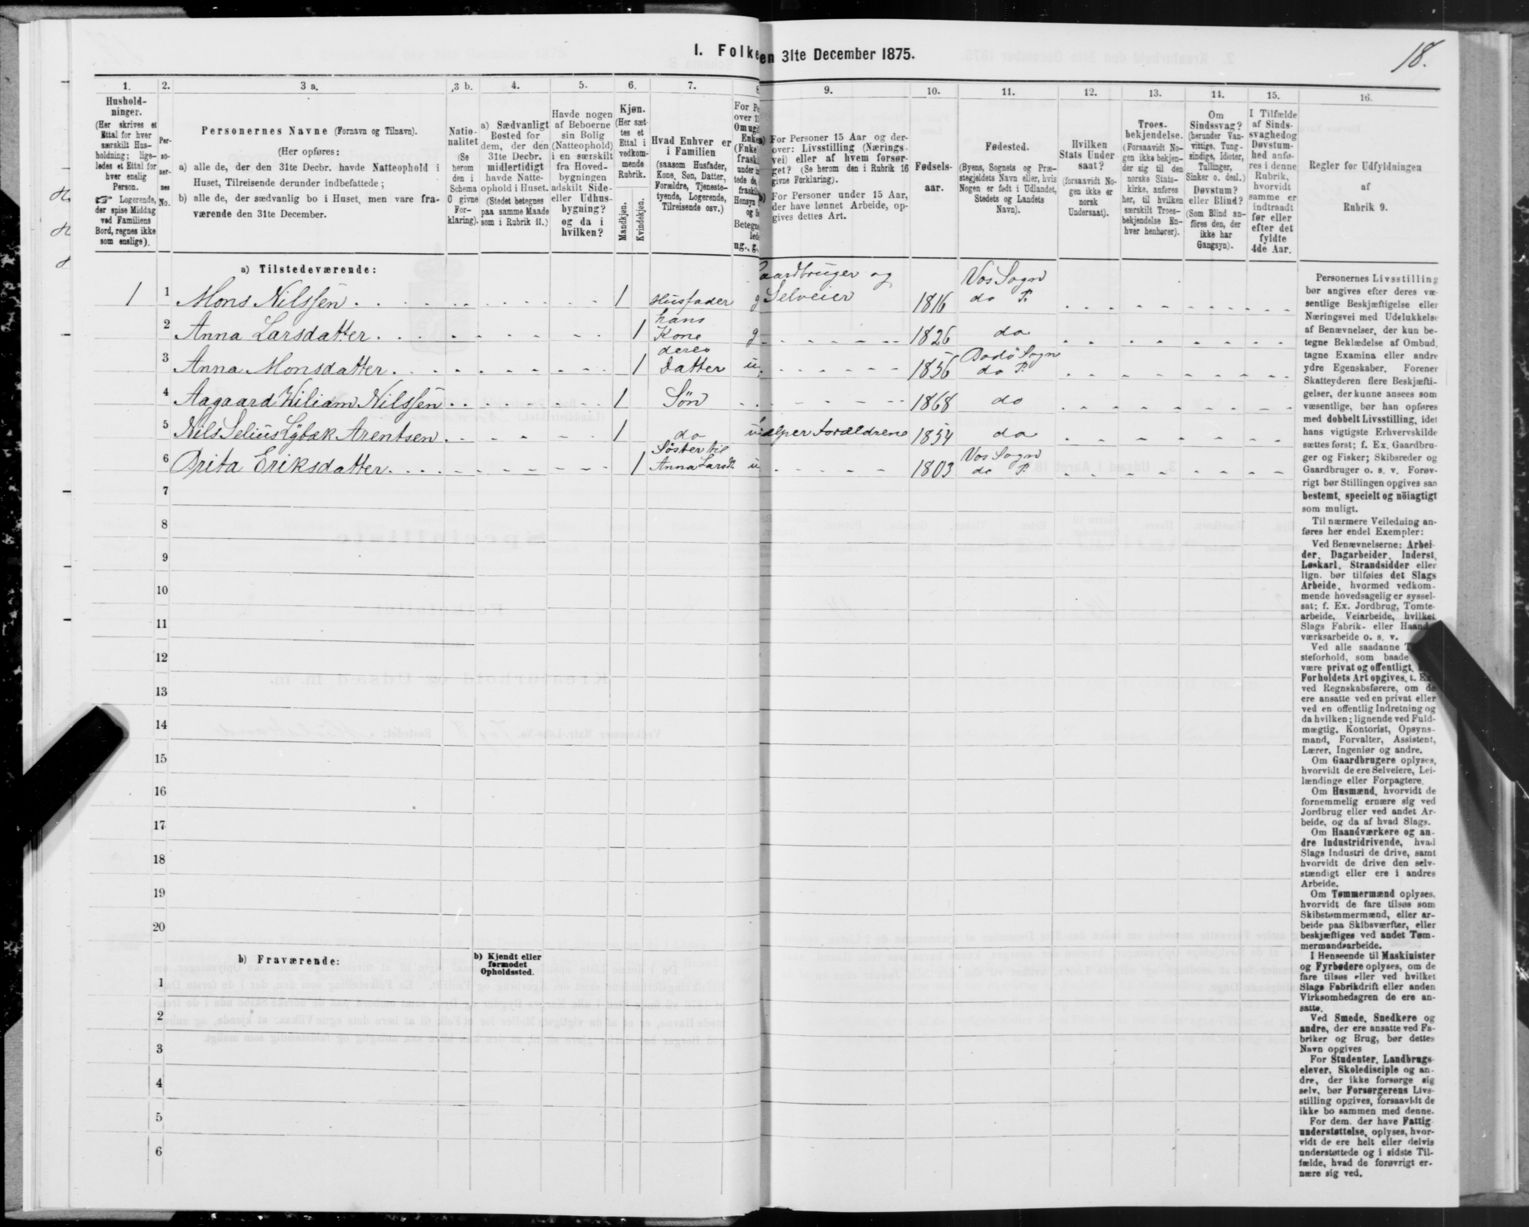 18.
I. Folke
en 31te December 1875.
1.
2.
3 a.
3 b.
4.
5.
6.
7.
8
9.
10.
11.
12.
13.
14.
15.
16.
Hushold-
ninger.
(Her skrives et
Ettal for hver
særskilt Hus-
holdning; lige-
ledes et Ettal for
hver enslig
Person.
☞ Logerende,
der spise Middag
ved Familiens
Bord, regnes ikke
som enslige).
Per-
so-
ner-
nes
No.
Personernes Navne (Fornavn og Tilnavn).
(Her opføres:
a) alle de, der den 31te Decbr. havde Natteophold i
Huset, Tilreisende derunder indbefattede;
b) alle de, der sædvanlig bo i Huset, men vare fra-
værende den 31te December.
Natio-
nalitet
(Se
herom
den i
Schema
C givne
For-
klaring).
a) Sædvanligt
Bosted for
dem, der den
31te Decbr.
midlertidigt
havde Natte-
ophold i Huset.
(Stedet betegnes
paa samme Maade
som i Rubrik 11.)
Havde nogen
af Beboerne
sin Bolig
(Natteophold)
i en særskilt
fra Hoved-
bygningen
adskilt Side-
eller Udhus-
bygning?
og da i
hvilken?
Kjøn.
(Her sæt-
tes et
Ettal i
vedkom-
mende
Rubrik.
Mandkjøn.
Kvindekjøn.
Hvad Enhver er
i Familien
(saasom Husfader,
Kone, Søn, Datter,
Forældre, Tjeneste-
tyende, Logerende,
Tilreisende osv.)
For Pe
over 1
Om ug
Enke
(Fnke
frask
under
tede de
fraskil
Hensyn
og
Betegne
lede
ug., g.
For Personer 15 Aar og der-
over: Livsstilling (Nærings-
vei) eller af hvem forsør-
get? (Se herom den i Rubrik 16
givne Forklaring).
For Personer under 15 Aar,
der have lønnet Arbeide, op-
gives dettes Art.
Fødsels-
aar.
Fødested.
(Byens, Sognets og Præ-
stegjeldets Navn eller, hvis
Nogen er født i Udlandet,
Stedets og Landets
Navn).
Hvilken
Stats Under
saat?
(forsaavidt No-
gen ikke er
norsk
Undersaat).
Troes-
bekjendelse.
(Forsaavidt No-
gen ikke bekjen-
der sig til den
norske Stats-
kirke, anføres
her, til hvilken
særskilt Troes-
bekjendelse En-
hver henhører).
Om
Sindssvag?
(herunder Van-
vittige, Tung-
sindige, Idioter,
Tullinger,
Sinker o. desl.)
Døvstum?
eller Blind?
(Som Blind an-
føres den, der
ikke har
Gangsyn).
I Tilfælde
af Sinds-
svaghed og
Døvstum-
hed anfø-
res i denne
Rubrik,
hvorvidt
samme er
indtraadt
før eller
efter det
fyldte
4de Aar.
Regler for Udfyldningen
af
Rubrik 9.
a) Tilstedeværende:
1 1 Mons Nilssen 1 Husfader g Gaardbruger og Selveier 1816 Vos Sogn do P.
2 Anna Larsdatter 1 hans Kone g 1826 do
3 Anna Monsdatter 1 deres datter u 1856 Bodø Sogn do P.
4 Aagaard Wiliam Nilssen 1 Søn 1868 do
5 Nils Selius Lybæk Arentsen 1 do u hjælper Forældrene 1854 do
6 Brita Eriksdatter 1 Søster til Anna Larsdt u 1803 Vos Sogn do P.
7
8
9
10
11
12
13
14
15
16
17
18
19
20
b) Fraværende:
b) Kjendt eller
formodet
Opholdssted.
1
2
3
4
5
6
Personernes Livsstilling
bør angives efter deres væ-
sentlige Beskjæftigelse eller
Næringsvei med Udelukkelse
af Benævnelser, der kun be-
tegne Beklædelse af Ombud,
tagne Examina eller andre
ydre Egenskaber. Forener
Skatteyderen flere Beskjæfti-
gelser, der kunne ansees som
væsentlige, bør han opføres
med dobbelt Livsstilling, idet
hans vigtigste Erhvervskilde
sættes først; f. Ex. Gaardbru-
ger og Fisker; Skibsreder og
Gaardbruger o. s. v. Forøv-
rigt bør Stillingen opgives saa
bestemt, specielt og nöiagtigt
som muligt.
Til nærmere Veiledning an-
føres her endel Exempler:
Ved Benævnelserne: Arbei-
der, Dagarbeider, Inderst,
Løskarl, Strandsidder eller
lign. bør tilføies det Slags
Arbeide, hvormed vedkom-
mende hovedsagelig er syssel-
sat; f. Ex. Jordbrug, Tomte-
arbeide, Veiarbeide, hvilket
Slags Fabrik- eller Haand-
værksarbeide o. s. v.
Ved alle saadanne
steforhold, som baade
være privat og offentligt,
Forholdets Art opgives, t. Ex.
ved Regnskabsførere, om de
ere ansatte ved en privat eller
ved en offentlig Indretning og
da hvilken; lignende ved Fuld-
mægtig, Kontorist, Opsyns-
mand, Forvalter, Assistent,
Lærer, Ingeniør og andre.
Om Gaardbrugere oplyses,
hvorvidt de ere Selveiere, Lei-
lændinge eller Forpagtere.
Om Husmænd, hvorvidt de
fornemmelig ernære sig ved
Jordbrug eller ved andet Ar-
beide, og da af hvad Slags.
Om Haandværkere og an-
dre Industridrivende, hvad
Slags Industri de drive, samt
hvorvidt de drive den selv-
stændigt eller ere i andres
Arbeide.
Om Tømmermænd oplyses,
hvorvidt de fare tilsøs som
Skibstømmermænd, eller ar-
beide paa Skibsværfter, eller
beskjæftiges ved andet Tøm-
mermandsarbeide.
I Henseende til Maskinister
og Fyrbødere oplyses, om de
fare tilsøs eller ved hvilket
Slags Fabrikdrift eller anden
Virksomhedsgren de ere an-
satte.
Ved Smede, Snedkere og
andre, der ere ansatte ved Fa-
briker og Brug, bør dettes
Navn opgives
For Studenter, Landbrugs-
elever, Skoledisciple og an-
dre, der ikke forsørge sig
selv, bør Forsørgerens Livs-
stilling opgives, forsaavidt de
ikke bo sammen med denne.
For dem, der have Fattig-
understøttelse, oplyses, hvor-
vidt de ere helt eller delvis
understøttede og i sidste Til-
fælde, hvad de forøvrigt er-
nære sig ved.